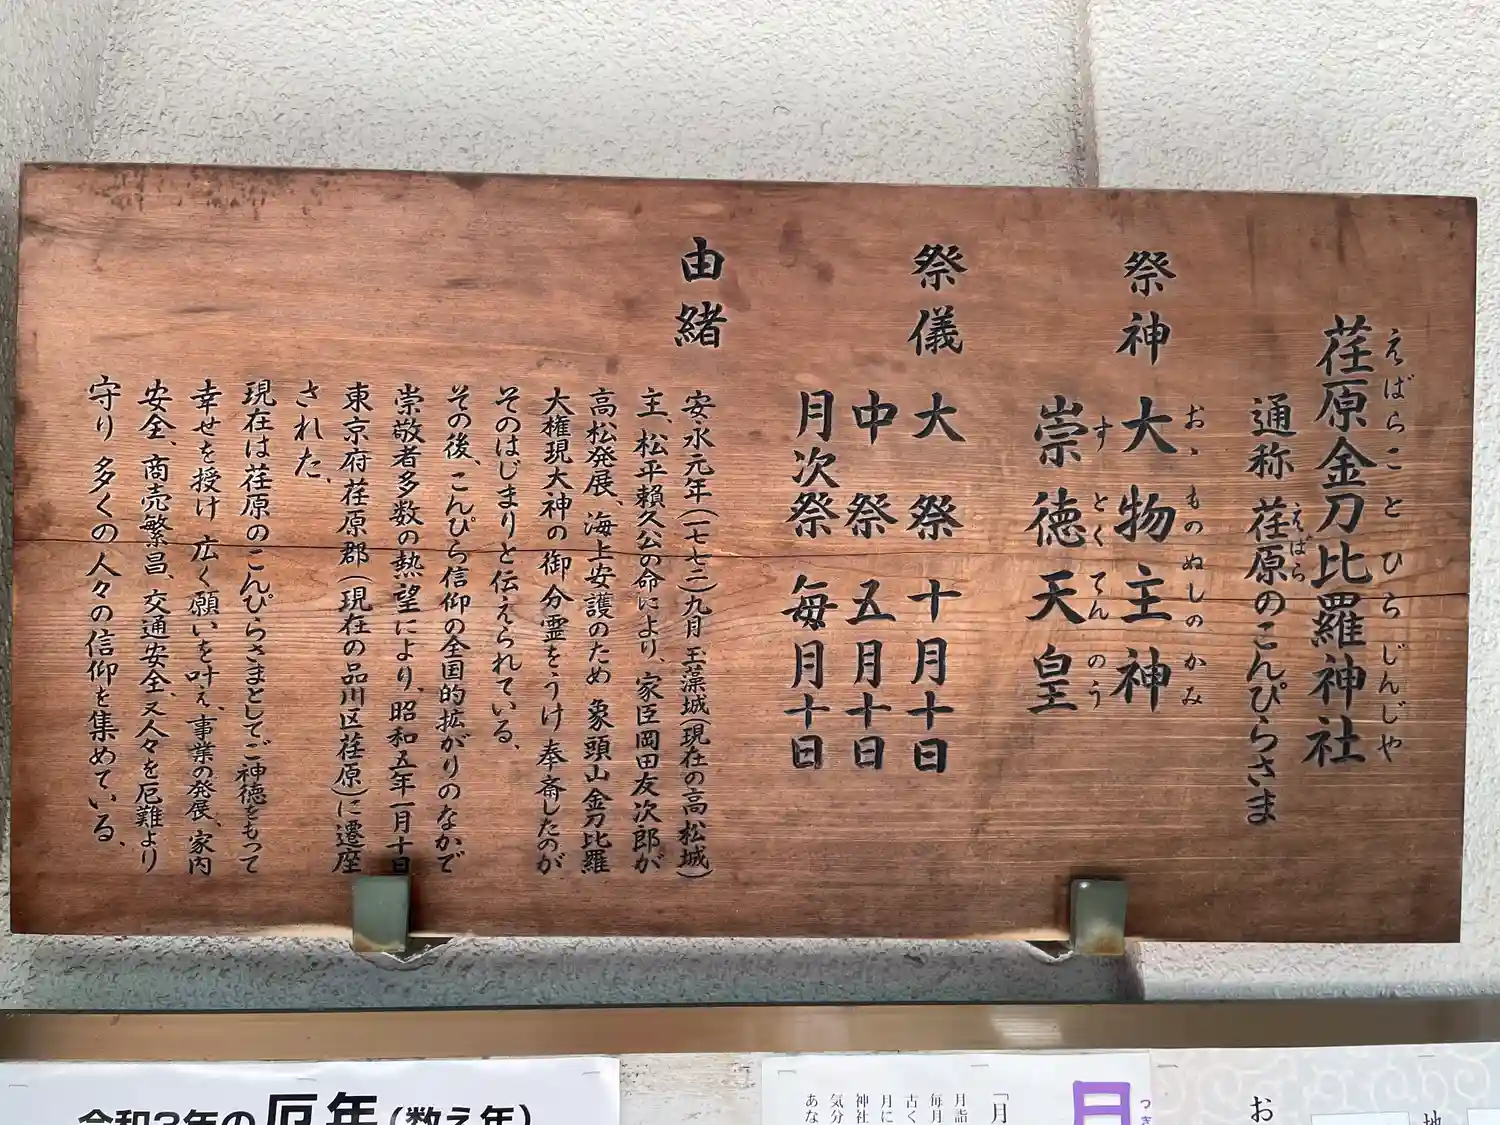 荏原金刀比羅神社
えばらことひらじんじや
通称 荏原のこんぴらさま
えばら
祭神 大物主神
おゝものぬしのかみ
崇徳天皇
すとくてんのう
祭儀 大祭 十月十日
中祭 五月十日
月次祭 毎月十日
由緒
安永元年(一七七二)九月 玉藻城(現在の高松城)
主、松平頼久公の命により、家臣岡田友次郎が
高松発展、海上安護のため 象頭山 金刀比羅
大権現大神の御分霊をうけ奉斎したのが
そのはじまりと伝えられている、
その後、こんぴら信仰の全国的拡がりのなかで
崇敬者多数の熱望により、昭和五年一月十日
東京府荏原郡(現在の品川区荏原)に遷座
された、
現在は荏原のこんぴらさまとしてご神徳をもって
幸せを授け 広く願いを叶え、事業の発展、家内
安全、商売繁昌、交通安全、又人々を厄難より
守り 多くの人々の信仰を集めている、
令和3年の厄年(数え年)
月
つき
「月
月詣
毎月
古く
月に
神社
気分
あな
お
地